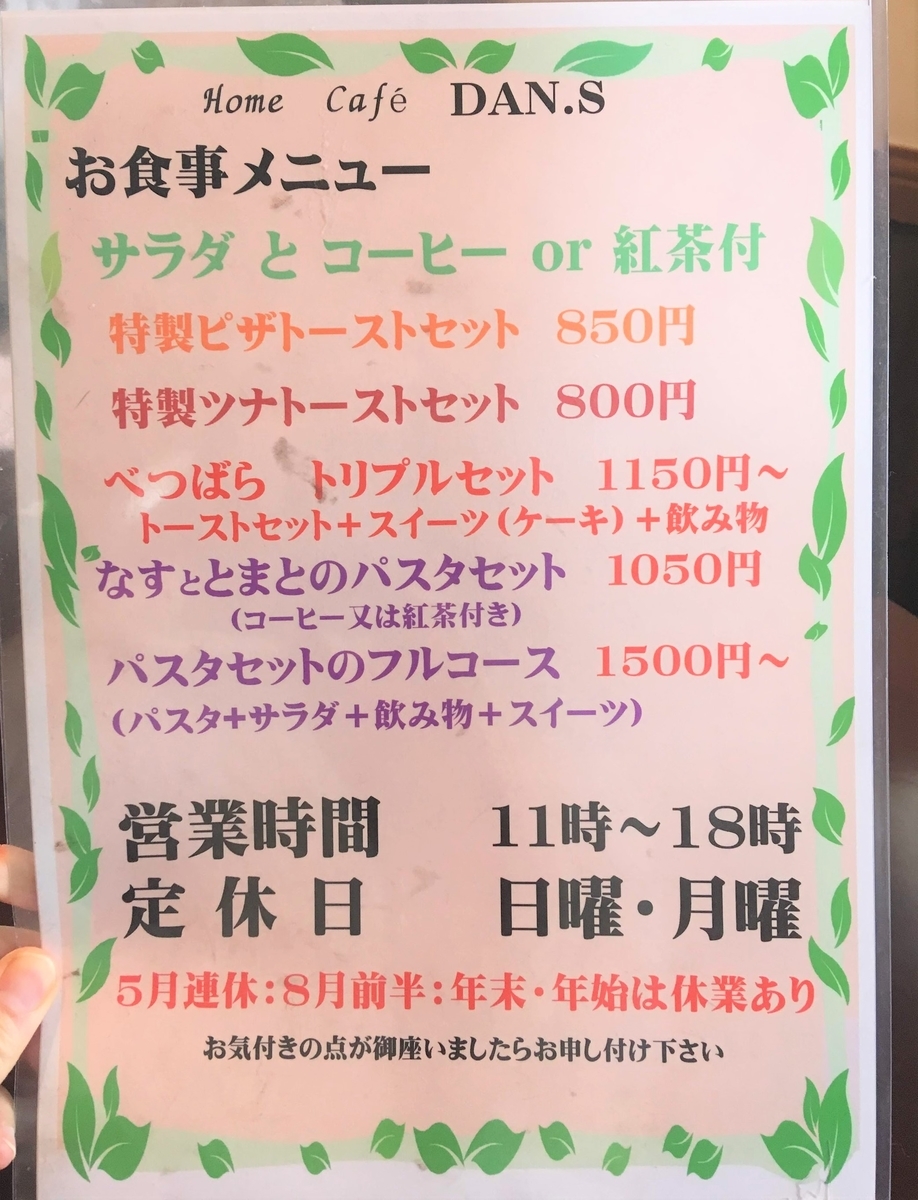 Home Café DAN.S
お食事メニュー
サラダ と コーヒー or 紅茶付
特製ピザトーストセット 850円
特製ツナトーストセット 800円
べつばら トリプルセット 1150円~
トーストセット+スイーツ(ケーキ)+飲み物
なすととまとのパスタセット 1050円
(コーヒー又は紅茶付き)
パスタセットのフルコース 1500円~
(パスタ+サラダ+飲み物+スイーツ)
営業時間 11時~18時
定休日 日曜・月曜
5月連休:8月前半:年末・年始は休業あり
お気付きの点が御座いましたらお申し付け下さい